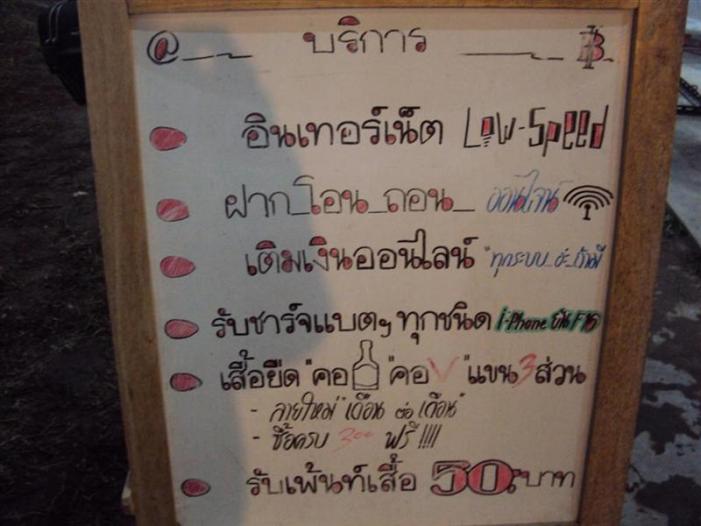 @ บริการ ฿
อินเทอร์เน็ต Low-Speed
ฝาก_โอน_ถอน_ ออนไลน์
เติมเงินออนไลน์ "ทุกระบบ
รับชาร์จแบตฯ ทุกชนิด i-Phone ยัน F16
เสื้อยืด "คอ "คอ V "แขน 3 ส่วน
- ลายใหม่ "เดือน ต่อ เดือน"
- ซื้อครบ 300 ฟรี !!!!
รับเพ้นท์เสื้อ 50 บาท